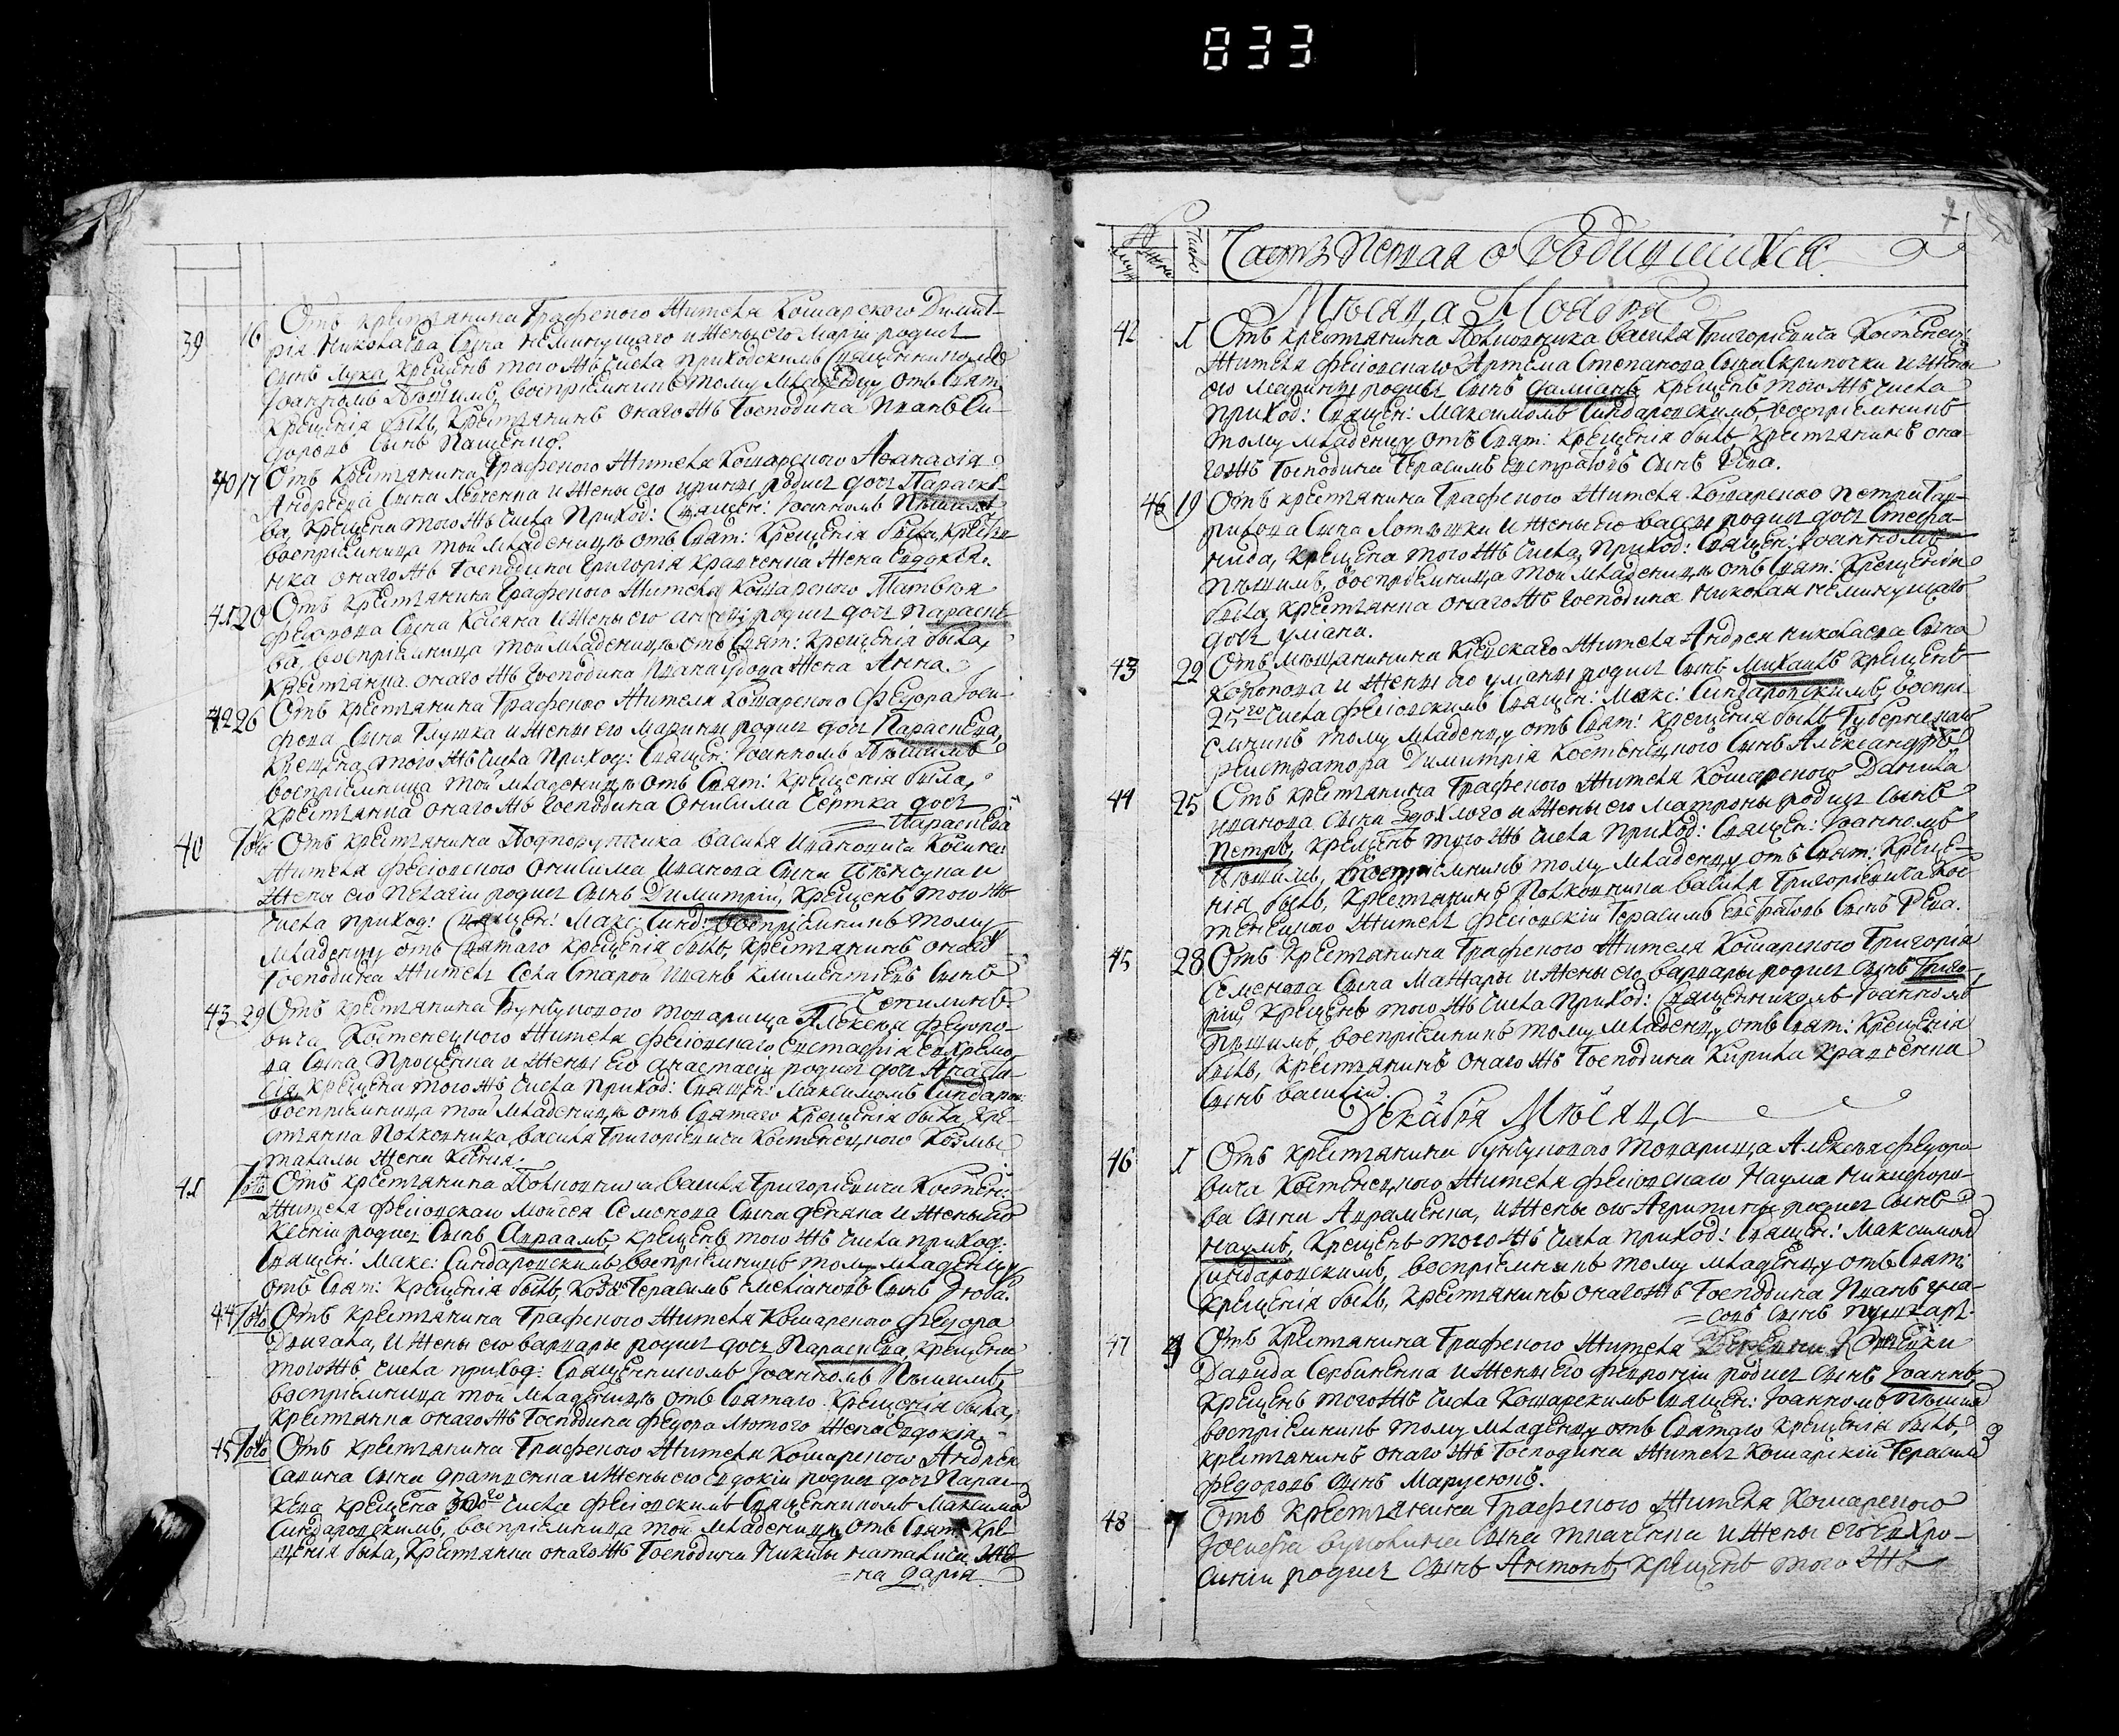 833
39 16 Отъ крестянина Графского жителя Кошарского Димит-
рія Николаева сына Неминущаго и жены его Маріи родися
сынъ Лука, крещенъ того жъ числа приходскимъ священникомъ
Іоанномъ восприемникъ тому младенцу отъ свят:
крещенія былъ, крестянинъ онаго жъ Господина Иванъ Си-
доровъ сынъ Пащенко.
40 17 Отъ крестянина Графского жителя Кошарского Афанасія
Андреева сына Левченка и жены его Ирины родися дочь Параске-
ва, крещена того жъ числа приход: священ: Іоанномъ
восприемница той младеницѣ отъ свят: крещенія была, крестян-
ка онаго жъ Господина Григорія Кравченка жена Евдокія.
41 20 Отъ крестянина Графского жителя Кошарского Матвѣя
Феодорова сына и жены его родися дочь Параске-
ва, восприемница той младеницѣ отъ свят: крещенія была,
крестянка онаго жъ Господина Ивана жена Анна.
42 26 Отъ крестянина Графского жителя Кошарского Федора Іоси-
фова сына Глушка и жены его Марины родися дочь Параскева,
крещена того жъ числа приход: священ: Іоанномъ
восприемница той младеницѣ отъ свят: крещенія была,
крестянка онаго жъ Господина Онисима дочь
Параскева
40 Тогож Отъ крестянина Подпоручика Василя Ивановича
жителя Фесювского Онисима Иванова сына и
жены его Пелагіи родися сынъ Димитрій, крещенъ того жъ
числа приход: священ: Макс: Синд: восприемникъ тому
младенцу отъ святаго крещенія былъ, крестянинъ онаго
Господина житель села Старой Иванъ Климентіевъ сынъ
43 29 Отъ крестянина Бунчукового товарища Алексея Федоро-
вича Костенецкого жителя Фесювскаго Евстафія
ва сына Проценка и жены его Анастасіи родися дочь Анаста-
сія, крещена того жъ числа приход: священ: Максимомъ Синдаров:
восприемница той младеницѣ отъ святаго крещенія была, кре-
стянка полковника Василя Григоріевича Костенецкого Козмы
жена Ксенія.
41 Тогож Отъ крестянина Полковника Василя Григоріевича Костен:
жителя Фесювскаго Мойсея Семенова сына и жены его
Ксеніи родися сынъ Авраамъ, крещенъ того жъ числа приход:
священ: Макс: Синдаровскимъ, восприемникъ тому младенцу
отъ свят: крещенія былъ, Герасимъ Емеліановъ сынъ
44 Тогож Отъ крестянина Графского жителя Кошарского Федора
и жены его Варвары родися дочь Параскева, крещена
того жъ числа приход: священникомъ Іоанномъ
восприемница той младеницѣ отъ святаго крещенія была,
крестянка онаго жъ Господина Федора Лютого жена Евдокія.
45 Тогож Отъ крестянина Графского жителя Кошарского Андрея
Савина сына и жены его Евдокіи родися дочь Парас-
кева, крещена 30го числа Фесювскимъ священникомъ Максимом
Синдаровскимъ, восприемница той младеницѣ отъ свят: кре-
щенія была, крестянка онаго жъ Господина Никиты же-
на Дарія.
Число
Часть Первая о Родившихся
Мѣсяца Ноября
42 1 Отъ крестянина Полковника Василя Григоріевича Костенец:
жителя Фесювскаго Артема Степанова сына Скрипочки и жены
его Марины родися сынъ Даміанъ, крещенъ того жъ числа
приход: священ: Максимомъ Синдаровскимъ, восприемникъ
тому младенцу отъ свят: крещенія былъ, крестянинъ она-
го жъ Господина Герасимъ Евстратовъ сынъ Рева.
46 19 Отъ крестянина Графского жителя Кошарского Петра Гав-
рилова сына и жены его Вассы родися дочь Стефа-
нида, крещена того жъ числа, приход: священ: Іоанномъ
восприемница той младеницѣ отъ свят: крещенія
была, крестянка онаго жъ Господина Николая Неминущаго
дочь Уліана.
43 22 Отъ мѣщанина Кіевскаго жителя Андрея Николаева сына
и жены его Уліаны родися сынъ Михаилъ, крещенъ
25го числа Фесювскимъ священ: Макс: Синдаровскимъ, воспри-
емникъ тому младенцу отъ свят: крещенія былъ Губернскаго
регистратора Димитрія Костенецкого сынъ Александръ
44 25 Отъ крестянина Графского жителя Кошарского Данила
Иванова сына Здохлого и жены его Матроны родися сынъ
Петръ, крещенъ того жъ числа приход: священ: Іоанномъ
восприемникъ тому младенцу отъ свят: креще-
нія былъ, крестянинъ Полковника Василя Григоріевича Кос-
тенецкого житель Фесювскій Герасимъ Евстратовъ сынъ Рева.
45 28 Отъ крестянина Графского жителя Кошарского Григорія
Семенова сына Мажары и жены его Варвары родися сынъ Григо-
рій, крещенъ того жъ числа приход: священникомъ Іоанномъ
восприемникъ тому младенцу отъ свят: крещенія
былъ, крестянинъ онаго жъ Господина Кирила Кравченка
сынъ Василій.
Декабря Мѣсяца
46 1 Отъ крестянина Бунчукового товарища Алексея Федоро-
вича Костенецкого жителя Фесювскаго Наума Никифоро-
ва сына Авраменка, и жены его Агрипины родися сынъ
Наумъ, крещенъ того жъ числа приход: священ: Максимом
Синдаровскимъ, восприемникъ тому младенцу отъ свят:
крещенія былъ, крестянинъ онаго жъ Господина Иванъ Вла-
совъ сынъ Пушкарь.
47 Отъ крестянина Графского жителя
Давида Сербиненка и жены его Февроніи родися сынъ Іоаннъ,
крещенъ того жъ числа Кошарскимъ священ: Іоанномъ
восприемникъ тому младенцу отъ святаго крещенія былъ,
крестянинъ онаго жъ Господина житель Кошарскій Герасим
Федоровъ сынъ
48 7 Отъ крестянина Графского жителя Кошарского
Іосифа сына Ткаченка и жены его Евхро-
синіи родися сынъ Антонъ, крещенъ того жъ